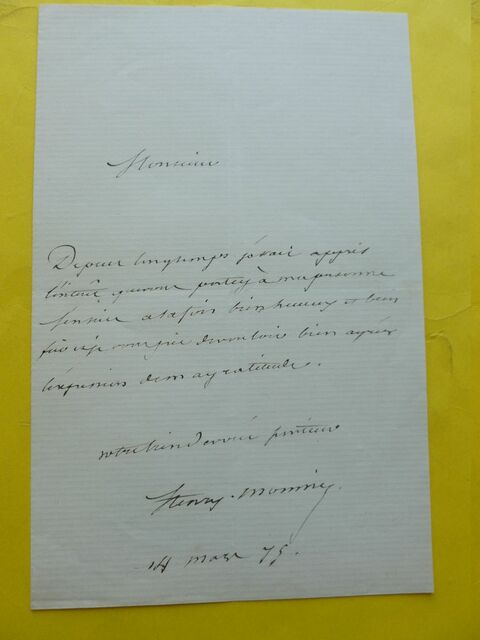 Monsieur
Depuis longtemps j'avais appris
l'intérêt que vous portez à ma personne
à la fois bien heureux et bien
je vous prie de vouloir bien agréer
l'expression de ma gratitude.
votre bien dévoué serviteur
Henry Monnier.
14 mars 75.